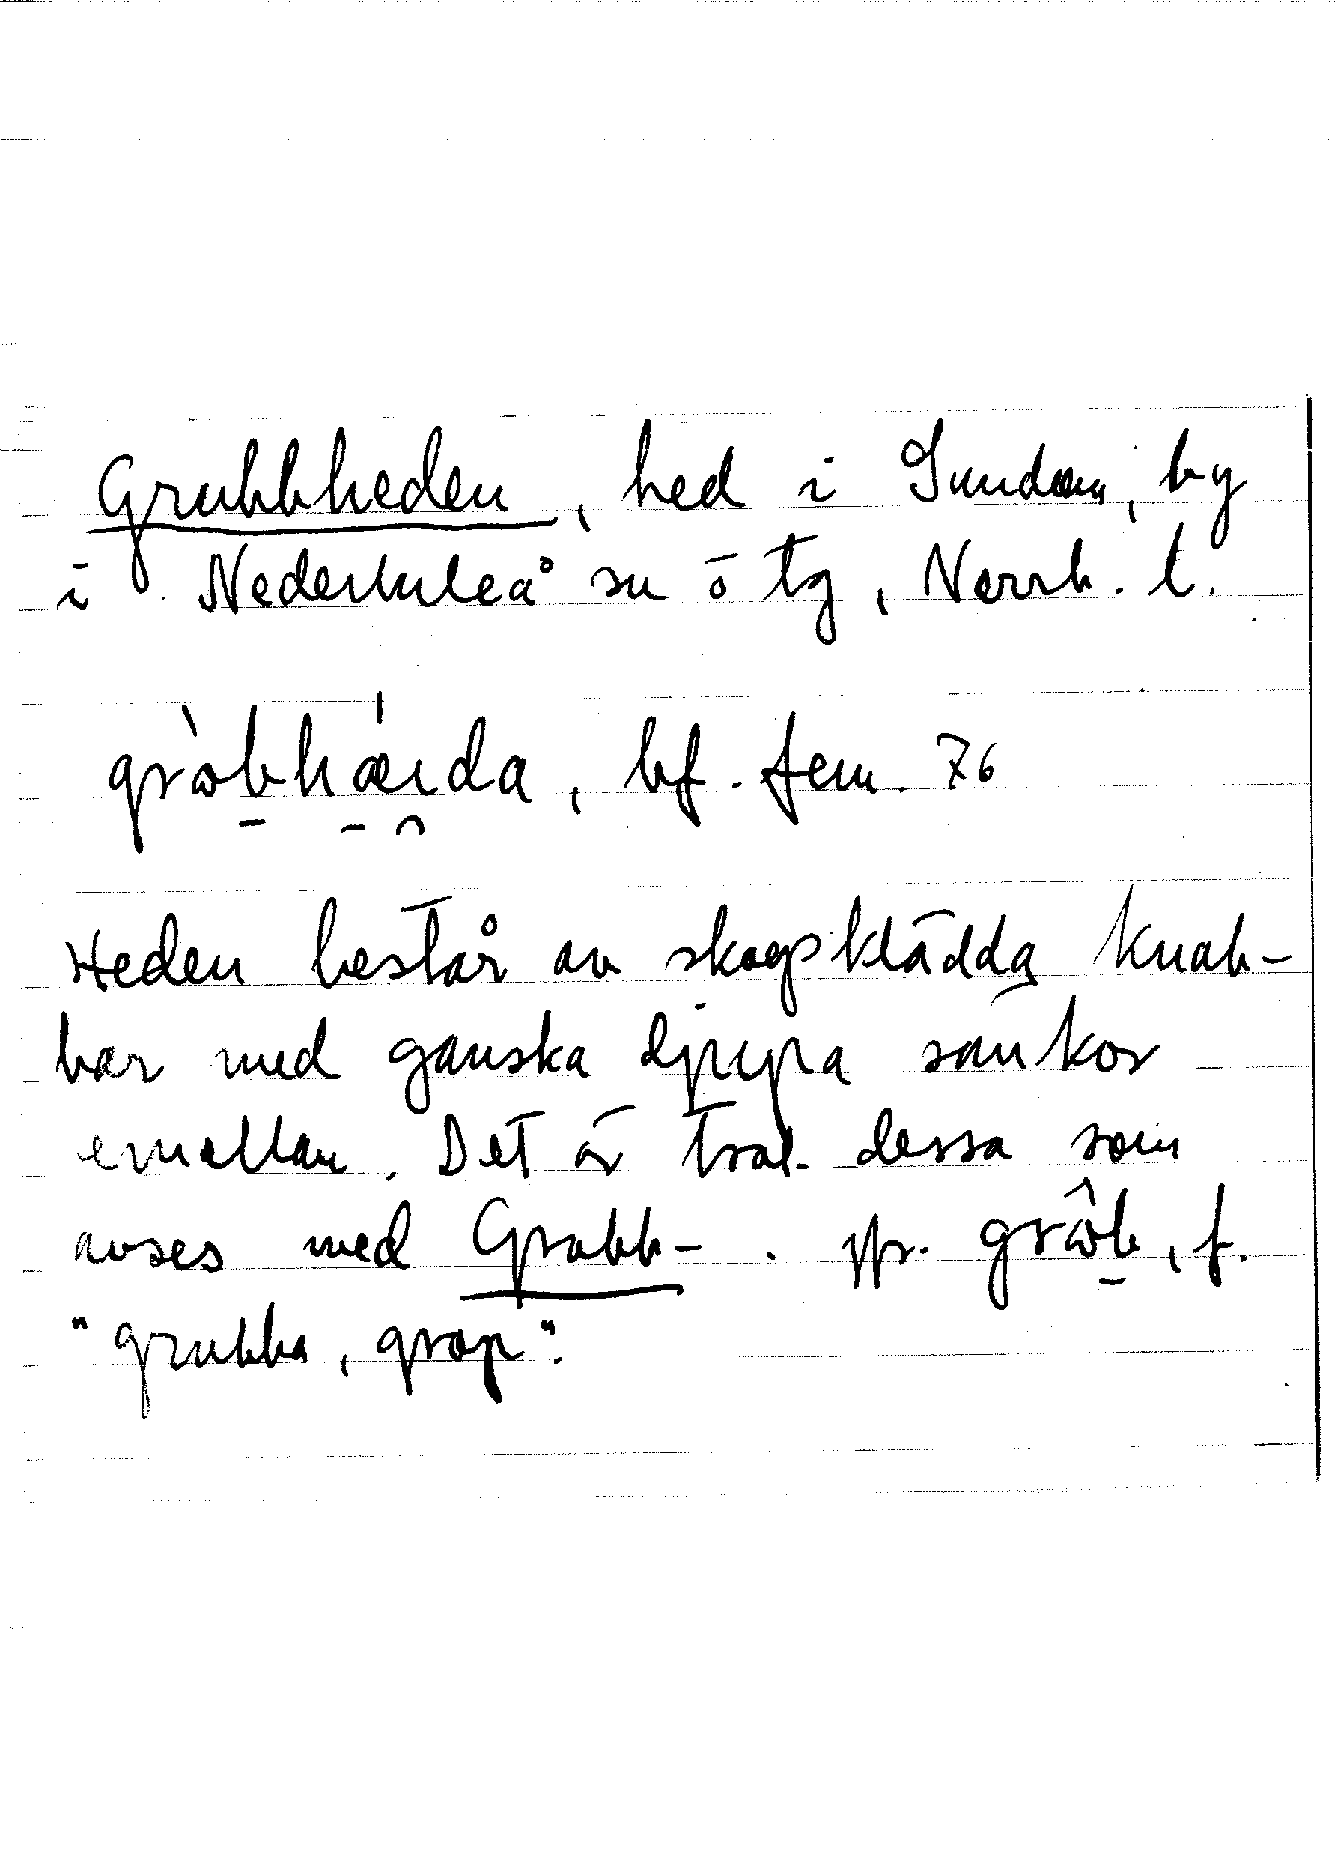 Grubbheden, hed i Sundom, by
i Nederluleå sn o tg, Norrb. l.
grὰbhærda, bf. fem. 76
Heden består av skogsklädda knab-
bar med ganska djupa sänkor
emellan. Det är trol. dessa som
avses med Grubb-. Jfr. grôb, f.
"grubba, grop".